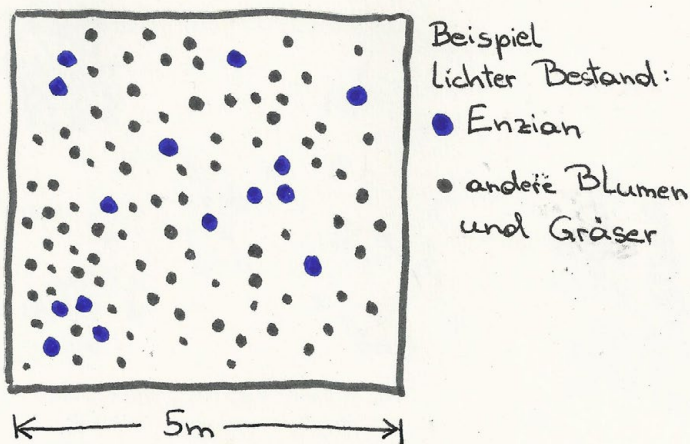 Beispiel
lichter Bestand:
Enzian
andere Blumen
und Gräser
5m